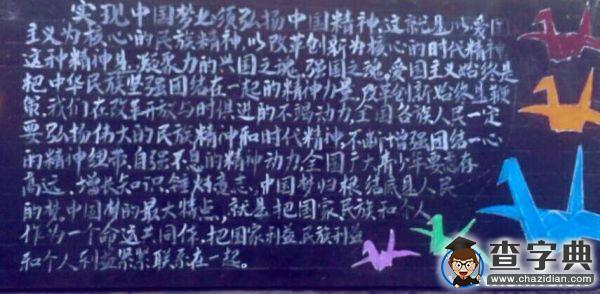 实现中国梦必须弘扬中国精神,这就是以爱国
主义为核心的民族精神,以改革创新为核心的时代精神
这种精神是凝聚力的兴国之魂,强国之魂。爱国主义始终是
把中华民族坚强团结在一起的精神力量,改革创新始终是鞭
策我们在改革开放与时俱进的不竭动力,全国各族人民一定
要弘扬伟大的民族精神和时代精神,不断增强团结一心
的精神纽带,自强不息的精神动力,全国广大青少年要志存
高远,增长知识,锤炼意志,中国梦归根结底是人民
的梦,中国梦的最大特点,就是把国家民族和个人
作为一个命运共同体,把国家利益,民族利益
和个人利益紧紧联系在一起。
查字典
www.chazidian.com